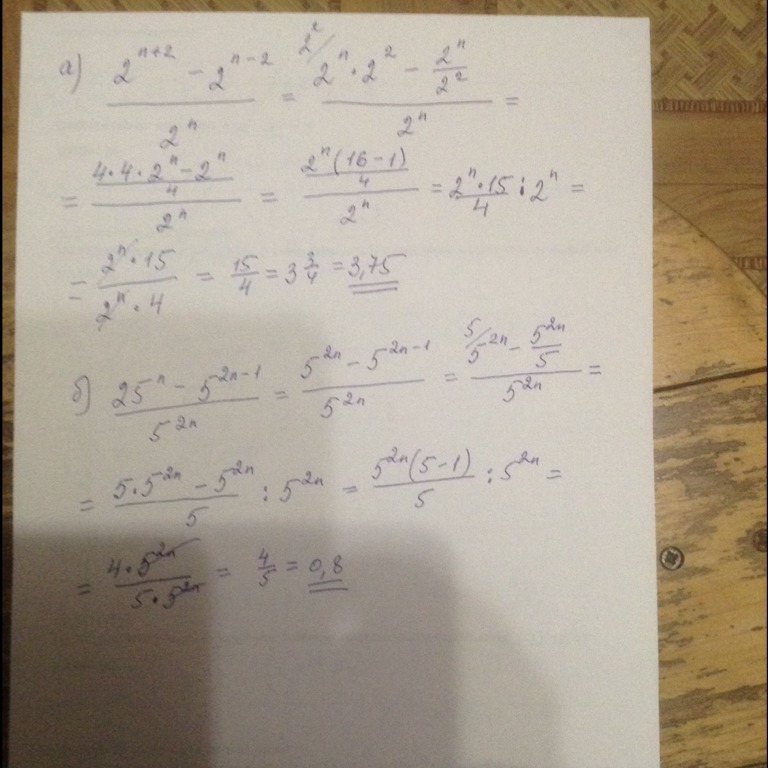 а) (2^(n+2) − 2^(n−2))/2^n = (2²/ 2^n · 2² − 2^n/2²)/2^n =
= ((4·4·2^n − 2^n)/4)/2^n = ((2^n(16−1))/4)/2^n = (2^n·15)/4 : 2^n =
= (2^n·15)/(2^n·4) = 15/4 = 3 3/4 = 3,75
б) (25^n − 5^(2n−1))/5^(2n) = (5^(2n) − 5^(2n−1))/5^(2n) = (5/ 5^(2n) − 5^(2n)/5)/5^(2n) =
= (5·5^(2n) − 5^(2n))/5 : 5^(2n) = (5^(2n)(5−1))/5 : 5^(2n) =
= (4·5^(2n))/(5·5^(2n)) = 4/5 = 0,8